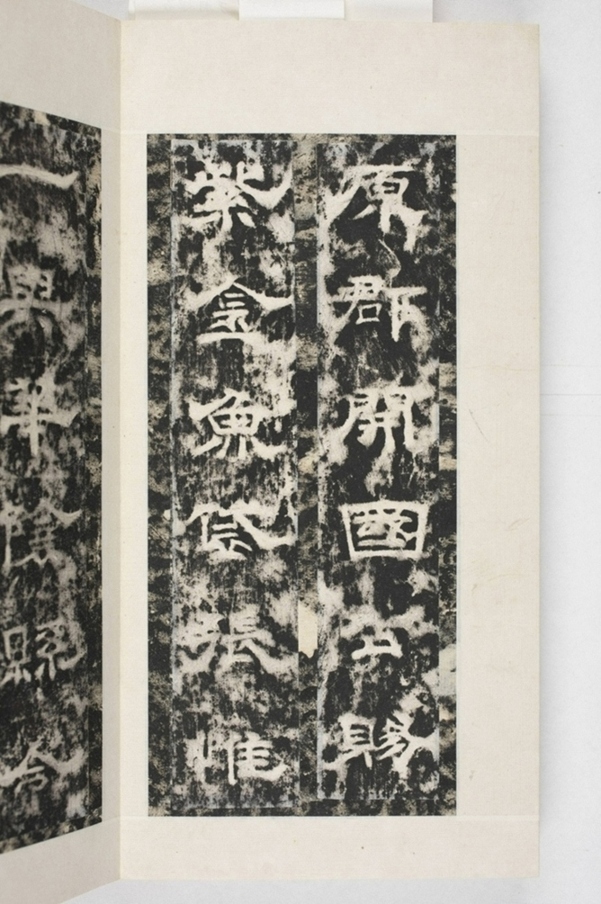 原郡開國公賜
紫金魚袋張惟
一與華陰縣令